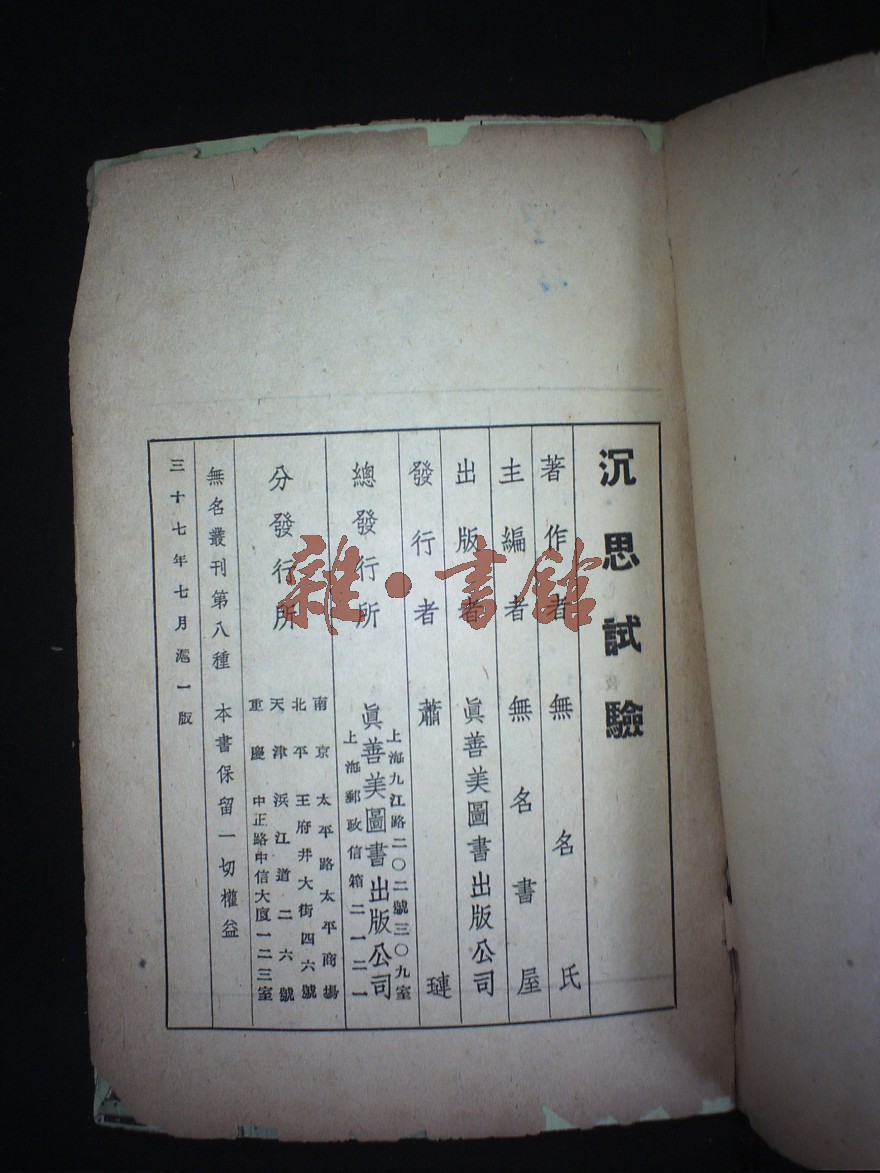 沉思試驗
著作者 無名氏
主編者 無名書屋
出版者 眞善美圖書出版公司
發行者 蕭璉
總發行所 上海九江路二〇二號三〇九室
眞善美圖書出版公司
上海郵政信箱二一二一
分發行所 南京 太平路太平商場
北平 王府井大街四六號
天津 浜江道二六號
重慶 中正路中信大廈一二三室
無名叢刊第八種 本書保留一切權益
三十七年七月滬一版
雜·書館